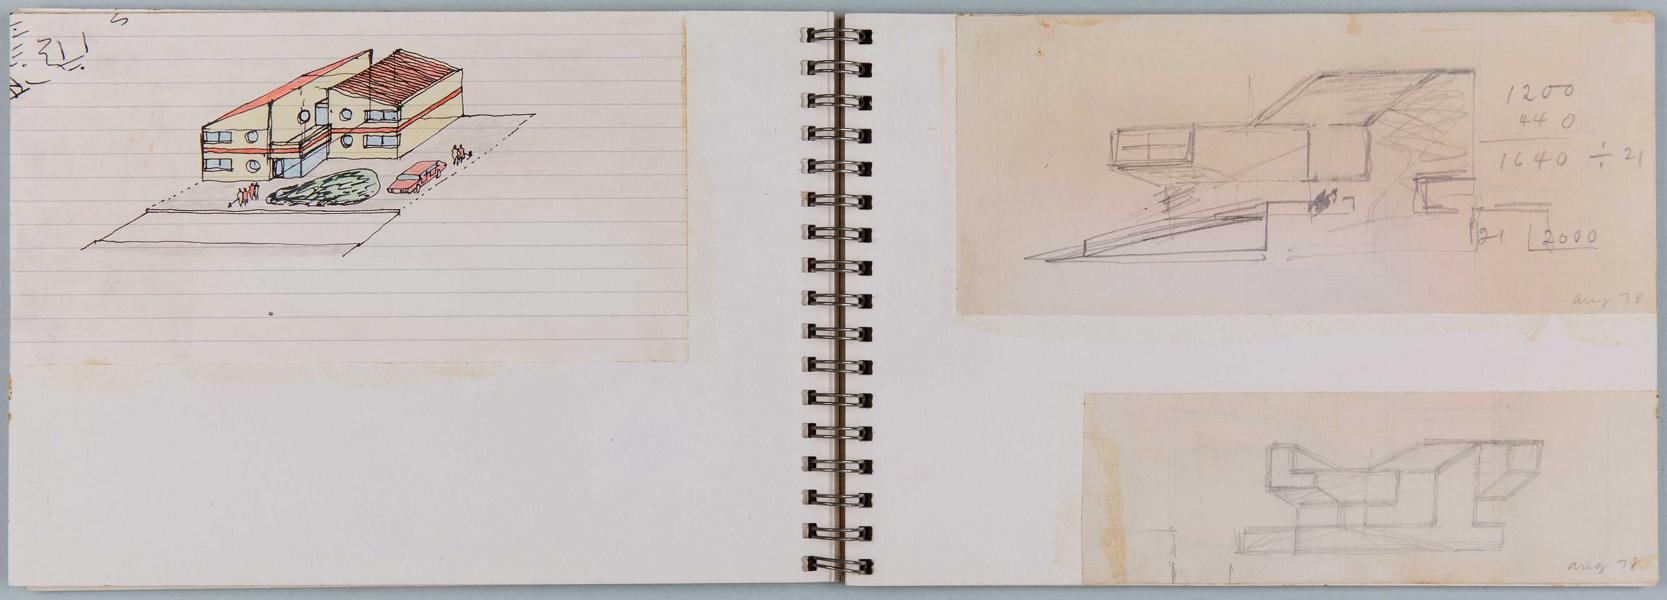 1200
440
1640 ÷ 21
21 2000
aug 78
aug 78